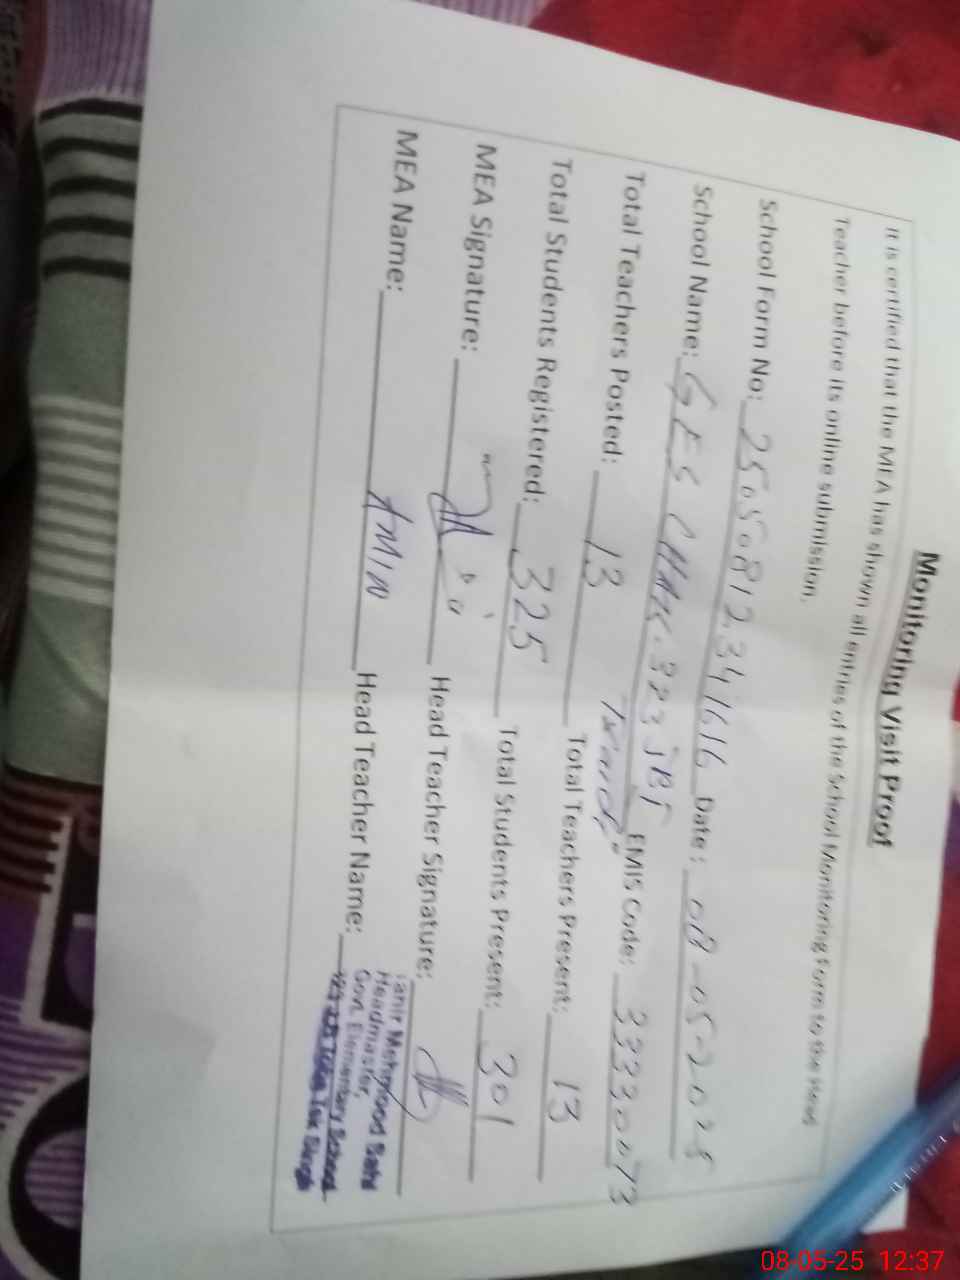 Monitoring Visit Proof
It is certified that the MEA has shown all entries of the School Monitoring Form to the Head
Teacher before its online submission.
School Form No: 250508123341616 Date: 08-05-2025
School Name: GES CHAK. 323 JB EMIS Code: 33330073
Total Teachers Posted: 13 Total Teachers Present: 13
Total Students Registered: 325 Total Students Present: 301
MEA Signature: Head Teacher Signature:
MEA Name: AMIN Head Teacher Name:
Tahir Mehmood Sahi
Headmaster,
Govt. Elementary School
323 JB Toba Tek Singh
08-05-25 12:37